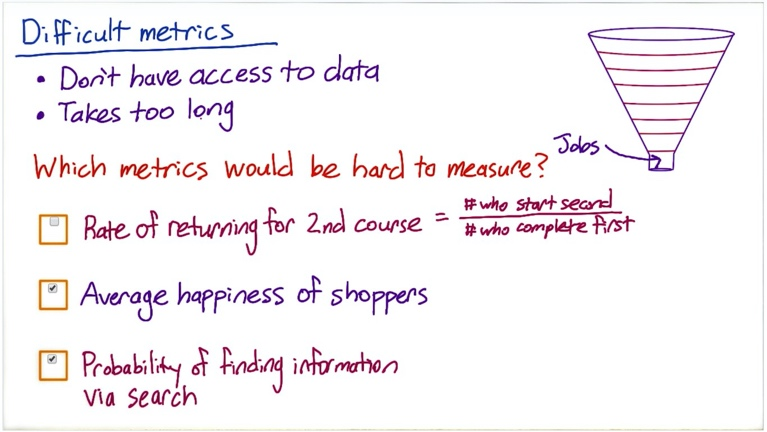 Difficult metrics
• Don't have access to data
• Takes too long
Jobs
Which metrics would be hard to measure?
Rate of returning for 2nd course = # who start second / # who complete first
Average happiness of shoppers
Probability of finding information
via search